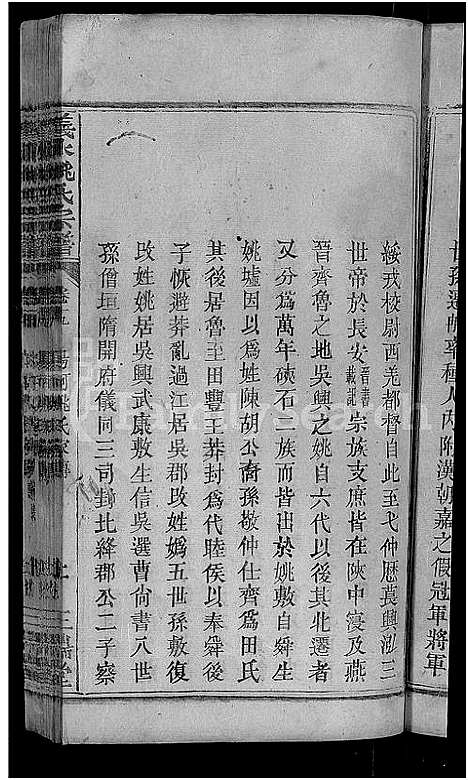 世孫遷那率種人內附漢朝嘉之假冠軍將軍
綏戎校尉西羌都督自此至弋仲歷萇興泓三
世帝於長安晉書載記宗族支庶皆在陝中寖及燕
晉齊魯之地吳興之姚自六代以後其北遷者
又分爲萬年硤石二族而皆出於姚敷自舜生
姚墟因以爲姓陳胡公裔孫敬仲仕齊爲田氏
其後居魯至田豐王莽封爲代睦侯以奉舜後
子恢避莽亂過江居吳郡攺姓嬀五世孫敷復
攺姓姚居吳興武康敷生信吳選曹尙書八世
孫僧垣隋開府儀同三司封北絳郡公二子察
義水姚氏宗譜 卷五 湯河姚氏家傳